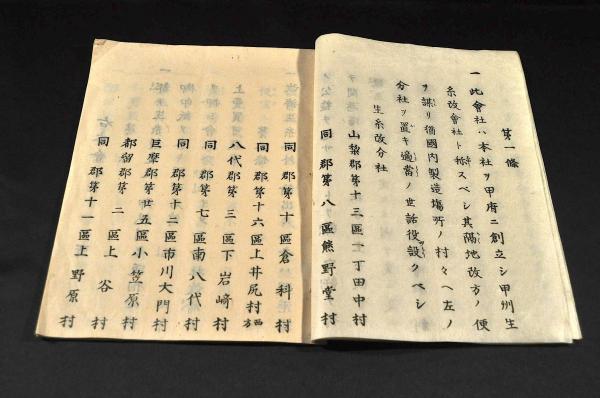 第一條
一 此會社ハ本社ヲ甲府ニ創立シ甲州生
糸改會社ト称スベシ其隔地改方ノ便
ヲ謀リ猶國内製造場所ノ村々ヘ左ノ
分社ヲ置キ適當ノ世話役設クベシ
生糸改分社
山梨郡第十三區一丁田中村
同郡第八區熊野堂村
同郡第十區倉科村
同郡第十六區上井尻村西方
八代郡第三區下岩﨑村
同郡第七區南八代村
巨摩郡第十二區市川大門村
同郡第廿五區小笠原村
都留郡第二區上谷村
同郡第十一區上野原村